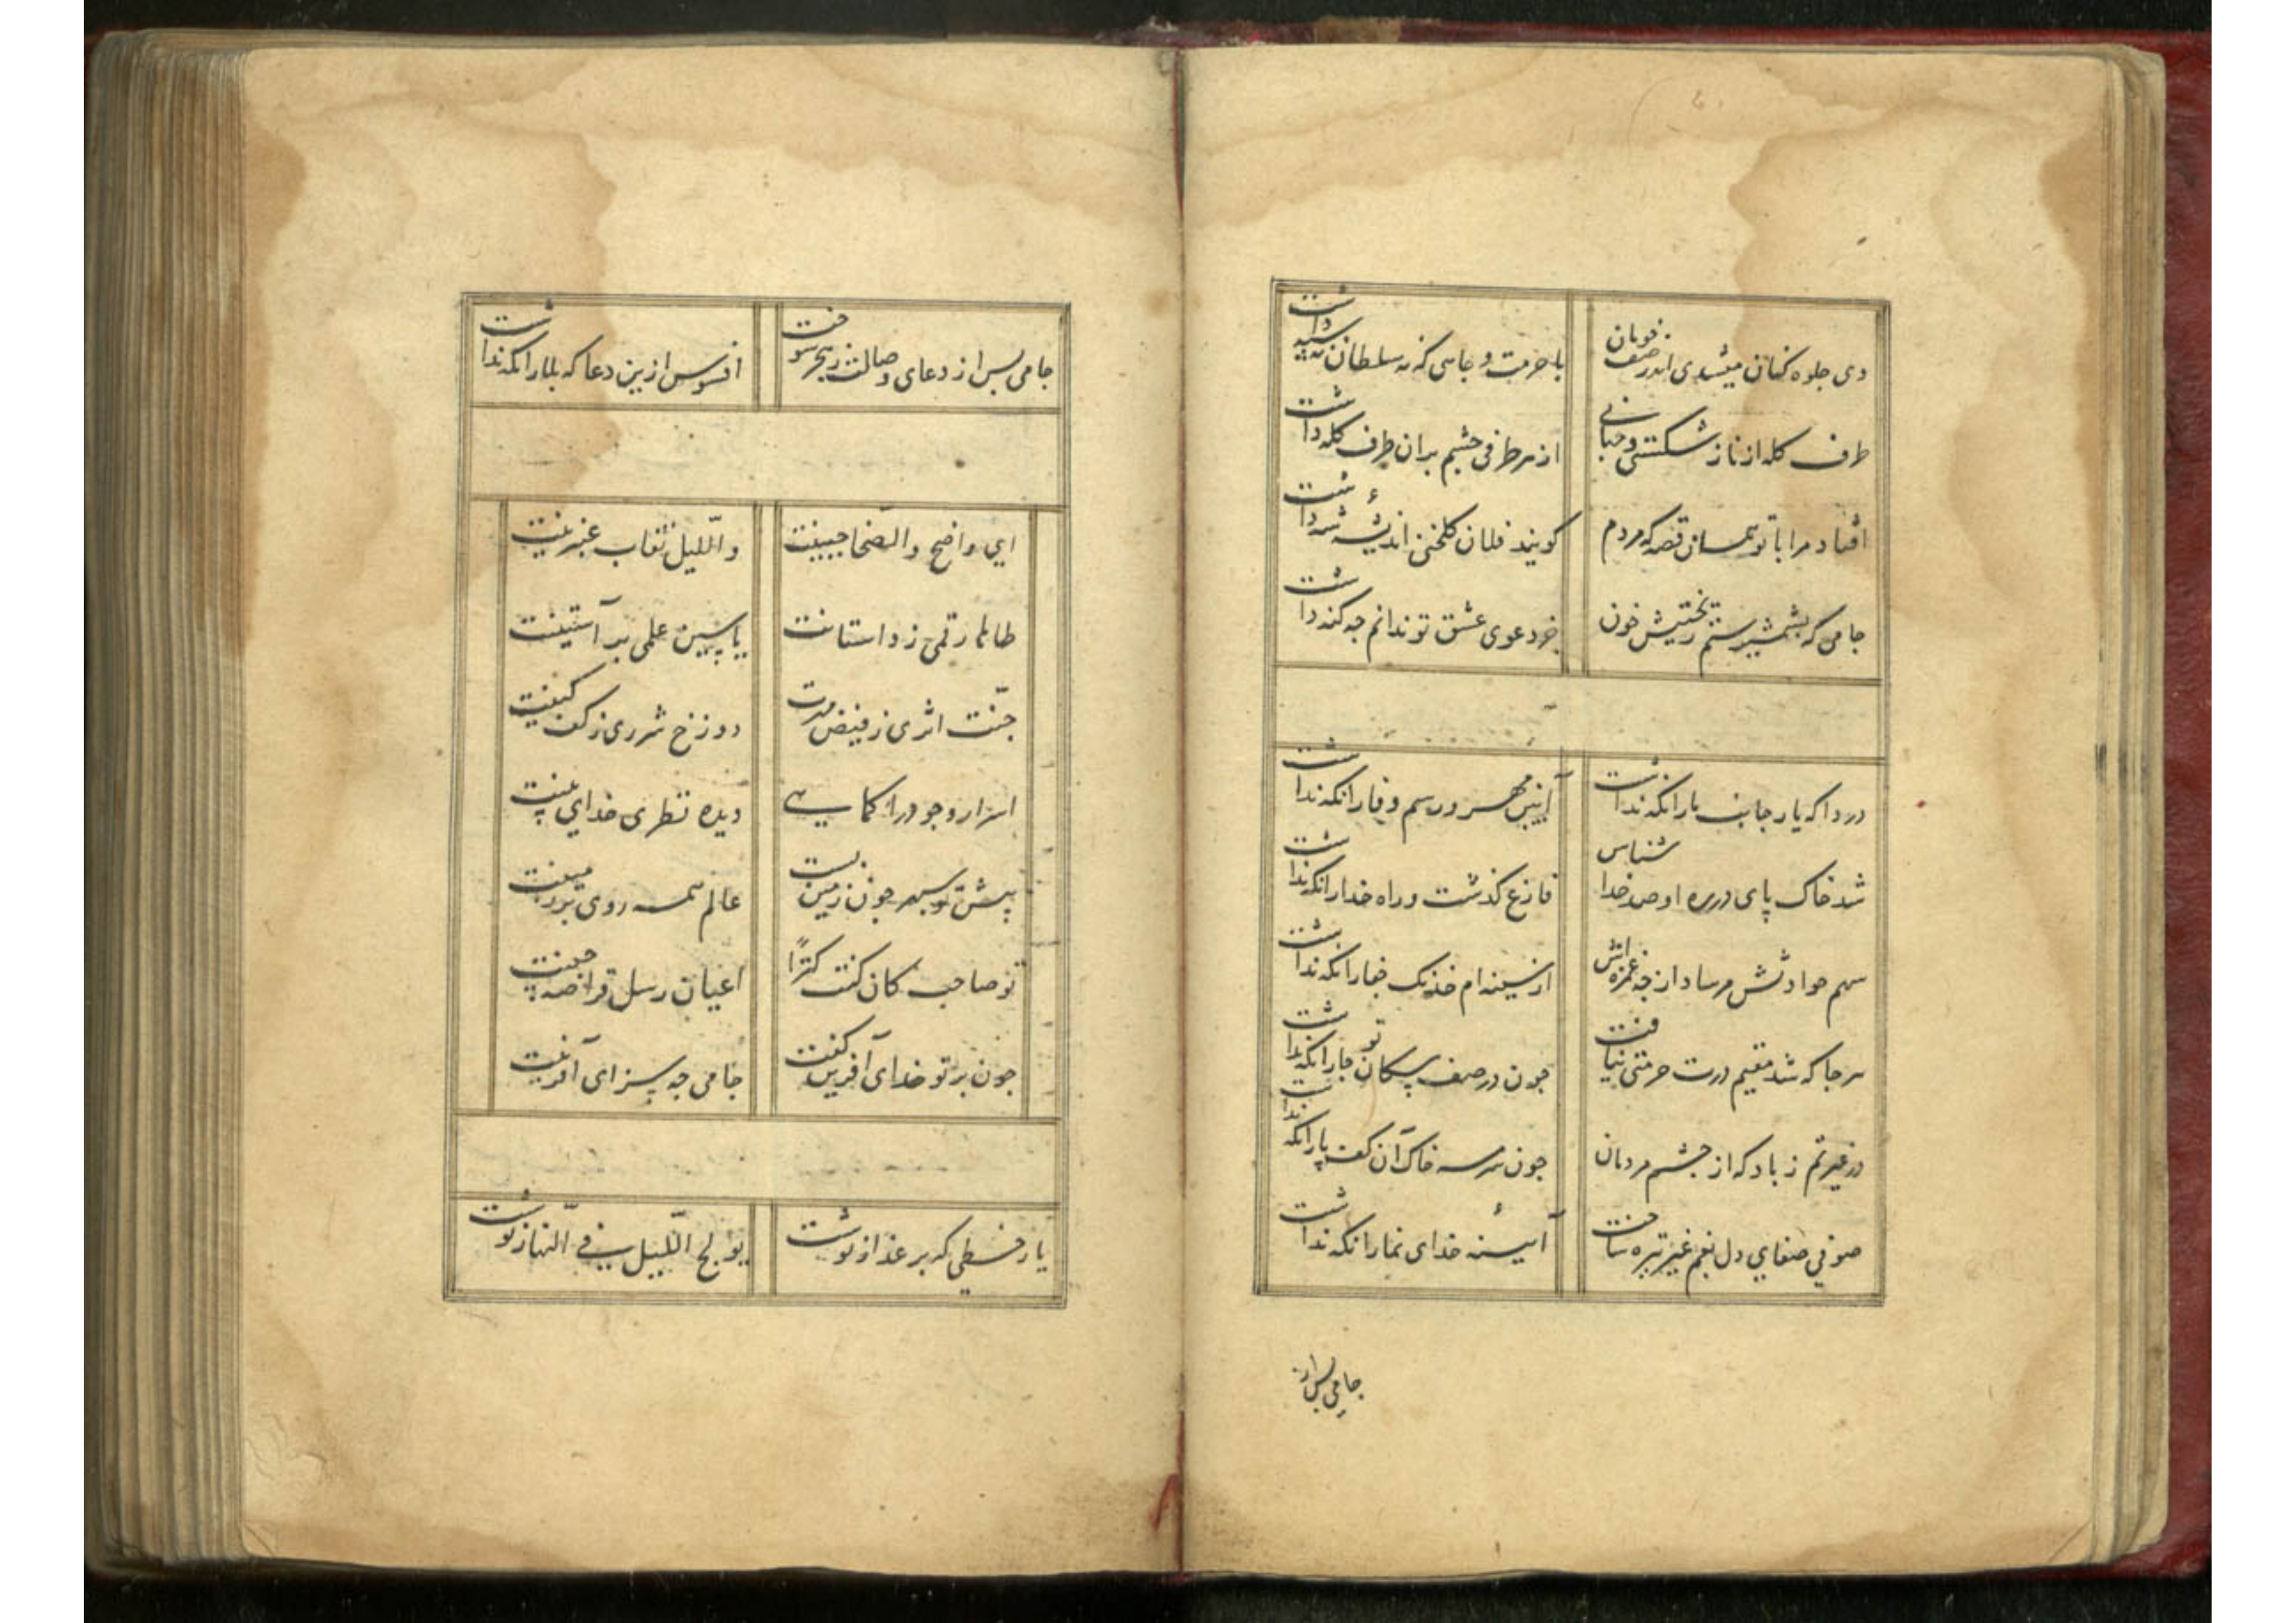 دی جلوه کنان میشدی اندر صف خوبان با حرمت و جاهی که نه سلطان نه سپه داشت
طرف کله از ناز شکستی و جهانی از هر طرفی چشم بران طرف کله داشت
افتاد مرا با تو همان قصه که مردم کویند فلان کلخنی اندیشهٔ شه داشت
جامی که بشمشیر ستم ریختیش خون جز دعوی عشق تو ندانم چه کنه داشت
دردا که یار جانب یارا نکه نداشت آیین مهر و رسم وفا را نکه نداشت
شد خاک پای در ره او صد خدا شناس فارغ کذشت و راه خدا را نکه نداشت
سهم حوادثش مرساد ار چه غمزه اش از سینه ام خدنک جفا را نکه نداشت
هر جا که شد مقیم درت حرمتی نیافت چون در صف سکان تو جا را نکه نداشت
در غیرتم ز باد که از چشم مردمان چون سرمه خاک آن کف پا را نکه نداشت
صوفی صفای دل بغم غیر تیره ساخت آیینهٔ خدای نما را نکه نداشت
جامی بس از
جامی بس از دعای وصالت ز هجر سوخت افسوس ازین دعا که بلا را نکه نداشت
ای واضح والضحا جبینت واللیل نقاب عنبرینت
طاها رقمی ز داستانت یاسین علمی بر آستینت
جنّت اثری ز فیض مهرت دوزخ شرری ز کف کینت
اسرار وجود را کماهی دیده نظری خدای بینت
پیش تو سپهر چون زمین پست عالم همه روی بر زمینت
تو صاحب کان کنت کنزًا اعیان رسل قراضه چینت
چون بر تو خدای آفرین کفت جامی چه سزای آفرینت
یار خطی که بر عذار نوشت یولج اللّیل فی النّهار نوشت